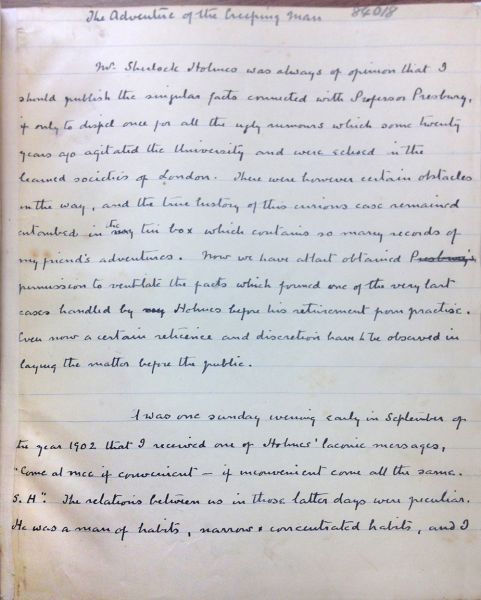 The Adventure of the Creeping Man 84018
Mr. Sherlock Holmes was always of opinion that I
should publish the singular facts connected with Professor Presbury,
if only to dispel once for all the ugly rumours which some twenty
years ago agitated the University and were echoed in the
learned societies of London. There were however certain obstacles
in the way, and the true history of this curious case remained
entombed in the my tin box which contains so many records of
my friend's adventures. Now we have at last obtained Presbury's
permission to ventilate the facts which formed one of the very last
cases handled by my Holmes before his retirement from practise.
Even now a certain reticence and discretion have to be observed in
laying the matter before the public.
I was one Sunday evening early in September of
the year 1902 that I received one of Holmes' laconic messages,
"Come at once if convenient — if inconvenient come all the same.
S. H". The relations between us in those latter days were peculiar.
He was a man of habits, narrow & concentrated habits, and I